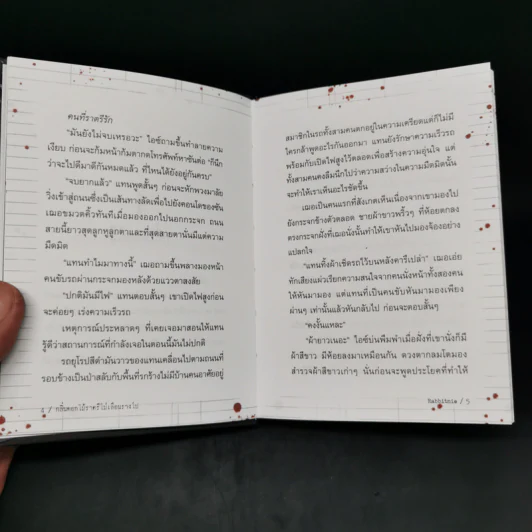 คนที่ราตรีรัก
"มันยังไม่จบเหรอวะ" ไอซ์ถามขึ้นทำลายความ
เงียบ ก่อนจะก้มหน้ากัมตากดโทรศัพท์หาซันต่อ "ก็นึก
ว่าจะไปตีมาดีกันหมดแล้ว ที่ไหนได้ยังอยู่กันครบ"
"จบยากแล้ว" แทนพูดสั้นๆ ก่อนจะหักพวงมาลัย
วิ่งเข้าสู่ถนนซึ่งเป็นเส้นทางลัดเพื่อไปยังคอนโดของซัน
เฌอขมวดคิ้วทันทีเมื่อมองออกไปนอกกระจก ถนน
สายนี้ยาวสุดลูกหูลูกตาและที่สุดสายตานั่นมีแต่ความ
มืดมิด
"แทนทำไมมาทางนี้" เฌอถามขึ้นพลางมองหน้า
คนขับรถผ่านกระจกมองหลังด้วยแววตาสงสัย
"ปกติมันมีไฟ" แทนตอบสั้นๆ เขาเปิดไฟสูงก่อน
จะค่อยๆ เร่งความเร็วรถ
เหตุการณ์ประหลาดๆ ที่เคยเจอมาสอนให้แทน
รู้ดีว่าสถานการณ์ที่กำลังเจอในตอนนี้มันไม่ปกติ
รถยุโรปสีดำมันวาวของแทนเคลื่อนไปตามถนนที่
รอบข้างเป็นป่าสลับกับพื้นที่รกร้างไม่มีบ้านคนอาศัยอยู่
4 / กลิ่นดอกไม้ราตรีไม่เลือนรางไป
สมาชิกในรถทั้งสามคนตกอยู่ในความเครียดแต่ก็ไม่มี
ใครกล้าพูดอะไรกันออกมา แทนยังรักษาความเร็วรถ
พร้อมกับเปิดไฟสูงไว้ตลอดเพื่อสร้างความอุ่นใจ แต่
ทั้งสามคนคงลืมนึกไปว่าความสว่างในความมืดมิดนั้น
จะทำให้เราเห็นอะไรชัดขึ้น
เฌอเป็นคนแรกที่สังเกตเห็นเนื่องจากเขามองไป
ยังกระจกข้างตัวตลอด ชายผ้าขาวพริ้วๆ ที่ห้อยตกลง
ตรงกระจกฝั่งที่เฌอนั่งนั้นทำให้เขาหันไปมองจ้องอย่าง
แปลกใจ
"แทนทิ้งผ้าเช็ดรถไว้บนหลังคารึเปล่า" เฌอเอ่ย
ทักเสียงแผ่วเรียกความสนใจจากคนนั่งหน้าทั้งสองคน
ให้หันมามอง แต่แทนที่เป็นคนขับหันมามองเพียง
ผ่านๆ เท่านั้นแล้วหันกลับไป ก่อนจะตอบสั้นๆ
"คงงั้นแหละ"
"ผ้ายาวเนอะ" ไอซ์บ่นพึมพำเมื่อฝั่งที่เขานั่งก็มี
ผ้าสีขาว มีห้อยลงมาเหมือนกัน ดวงตากลมโตมอง
สำรวจผ้าสีขาวเก่าๆ นั่นก่อนจะพูดประโยคที่ทำให้
Rabbitnia / 5